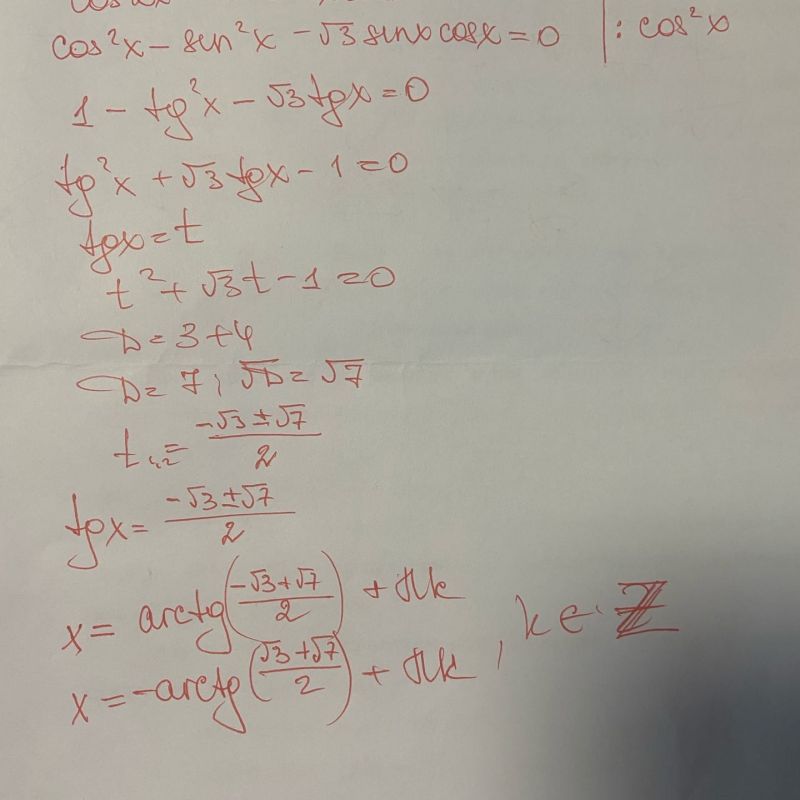 cos²x - sin²x - √3 sinx cosx = 0 | : cos²x
1 - tg²x - √3 tgx = 0
tg²x + √3 tgx - 1 = 0
tgx = t
t² + √3t - 1 = 0
D = 3 + 4
D = 7; √D = √7
t₁,₂ = (-√3 ± √7)/2
tgx = (-√3 ± √7)/2
x = arctg((-√3 + √7)/2) + πk
x = -arctg((√3 + √7)/2) + πk, k ∈ ℤ